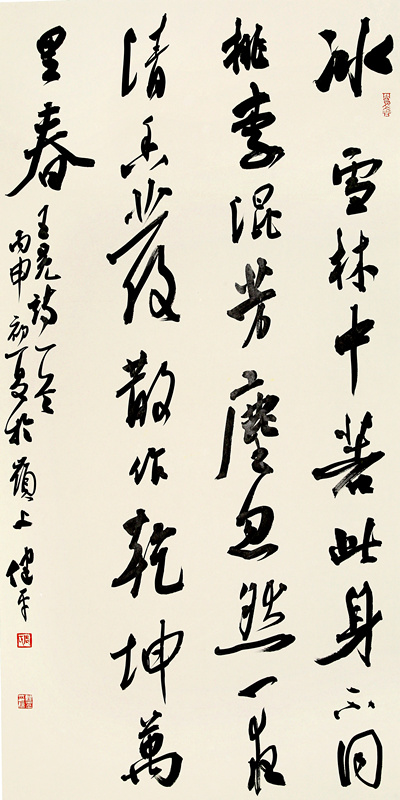 冰雪林中著此身不同
桃李混芳塵忽然一夜
清香發散作乾坤萬
里春
王冕詩一首
丙申初夏於上健平